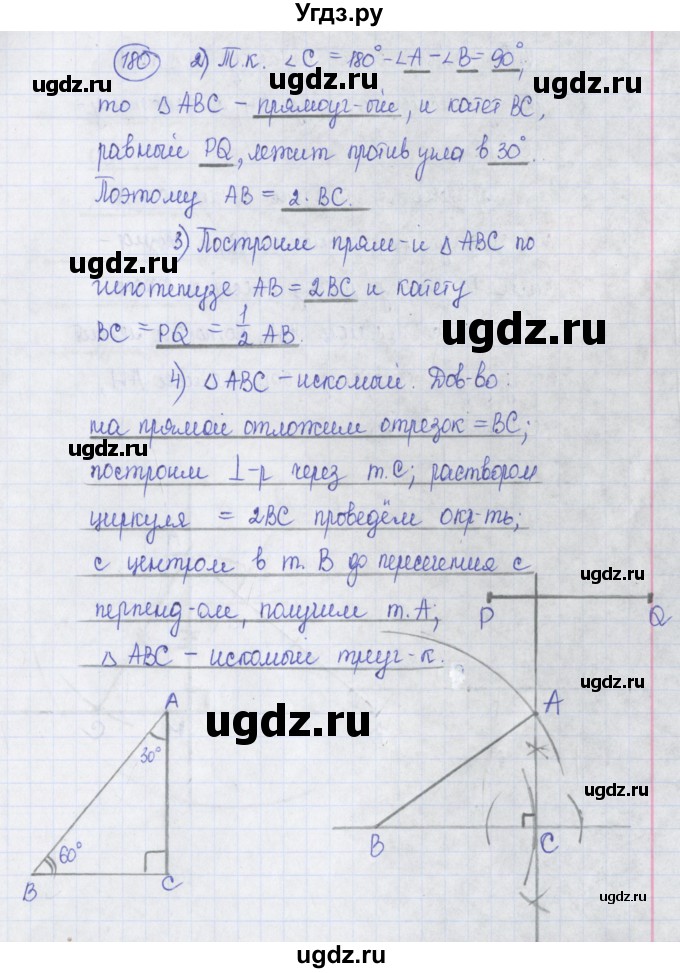 Угдз.ру
180 2) Т.к. ∠C = 180° - ∠A - ∠B = 90°,
то △ABC - прямоуг-ый, и катет BC,
равный PQ, лежит против угла в 30°.
Поэтому AB = 2·BC.
3) Построим прям-й △ABC по
гипотенузе AB = 2BC и катету
BC = PQ = 1/2 AB.
4) △ABC - искомый. Док-во:
на прямой отложим отрезок = BC;
построим ⊥-р через т.C; раствором
циркуля = 2BC проведём окр-ть;
с центром в т. B до пересечения с
перпенд-ом, получим т.A;
△ABC - искомый треуг-к.
P Q
A
30°
60°
B C
A
B C
ugdz.ru
ugdz.ru
ugdz.ru
ugdz.ru
ugdz.ru
ugdz.ru
ugdz.ru
ugdz.ru
ugdz.ru
ugdz.ru
ugdz.ru
ugdz.ru
ugdz.ru